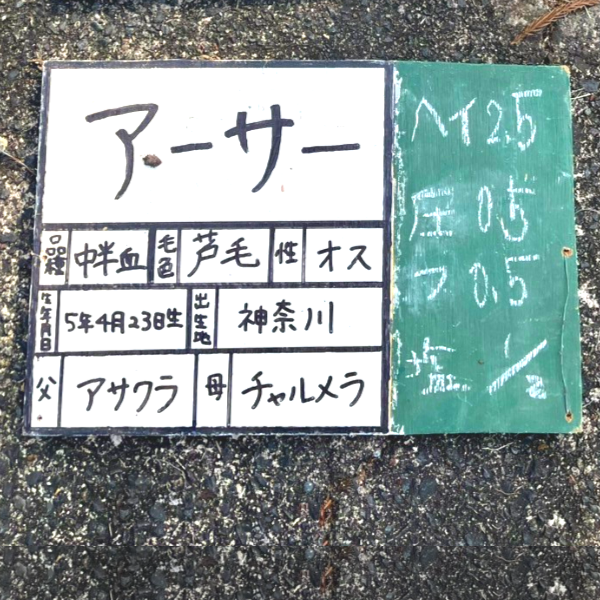 アーサー
品種 中半血 毛色 芦毛 性 オス
生年月日 5年4月23日生 出生地 神奈川
父 アサクラ 母 チャルメラ
ヘイ 2.5
圧 0.5
フ 0.5
塩 1/2